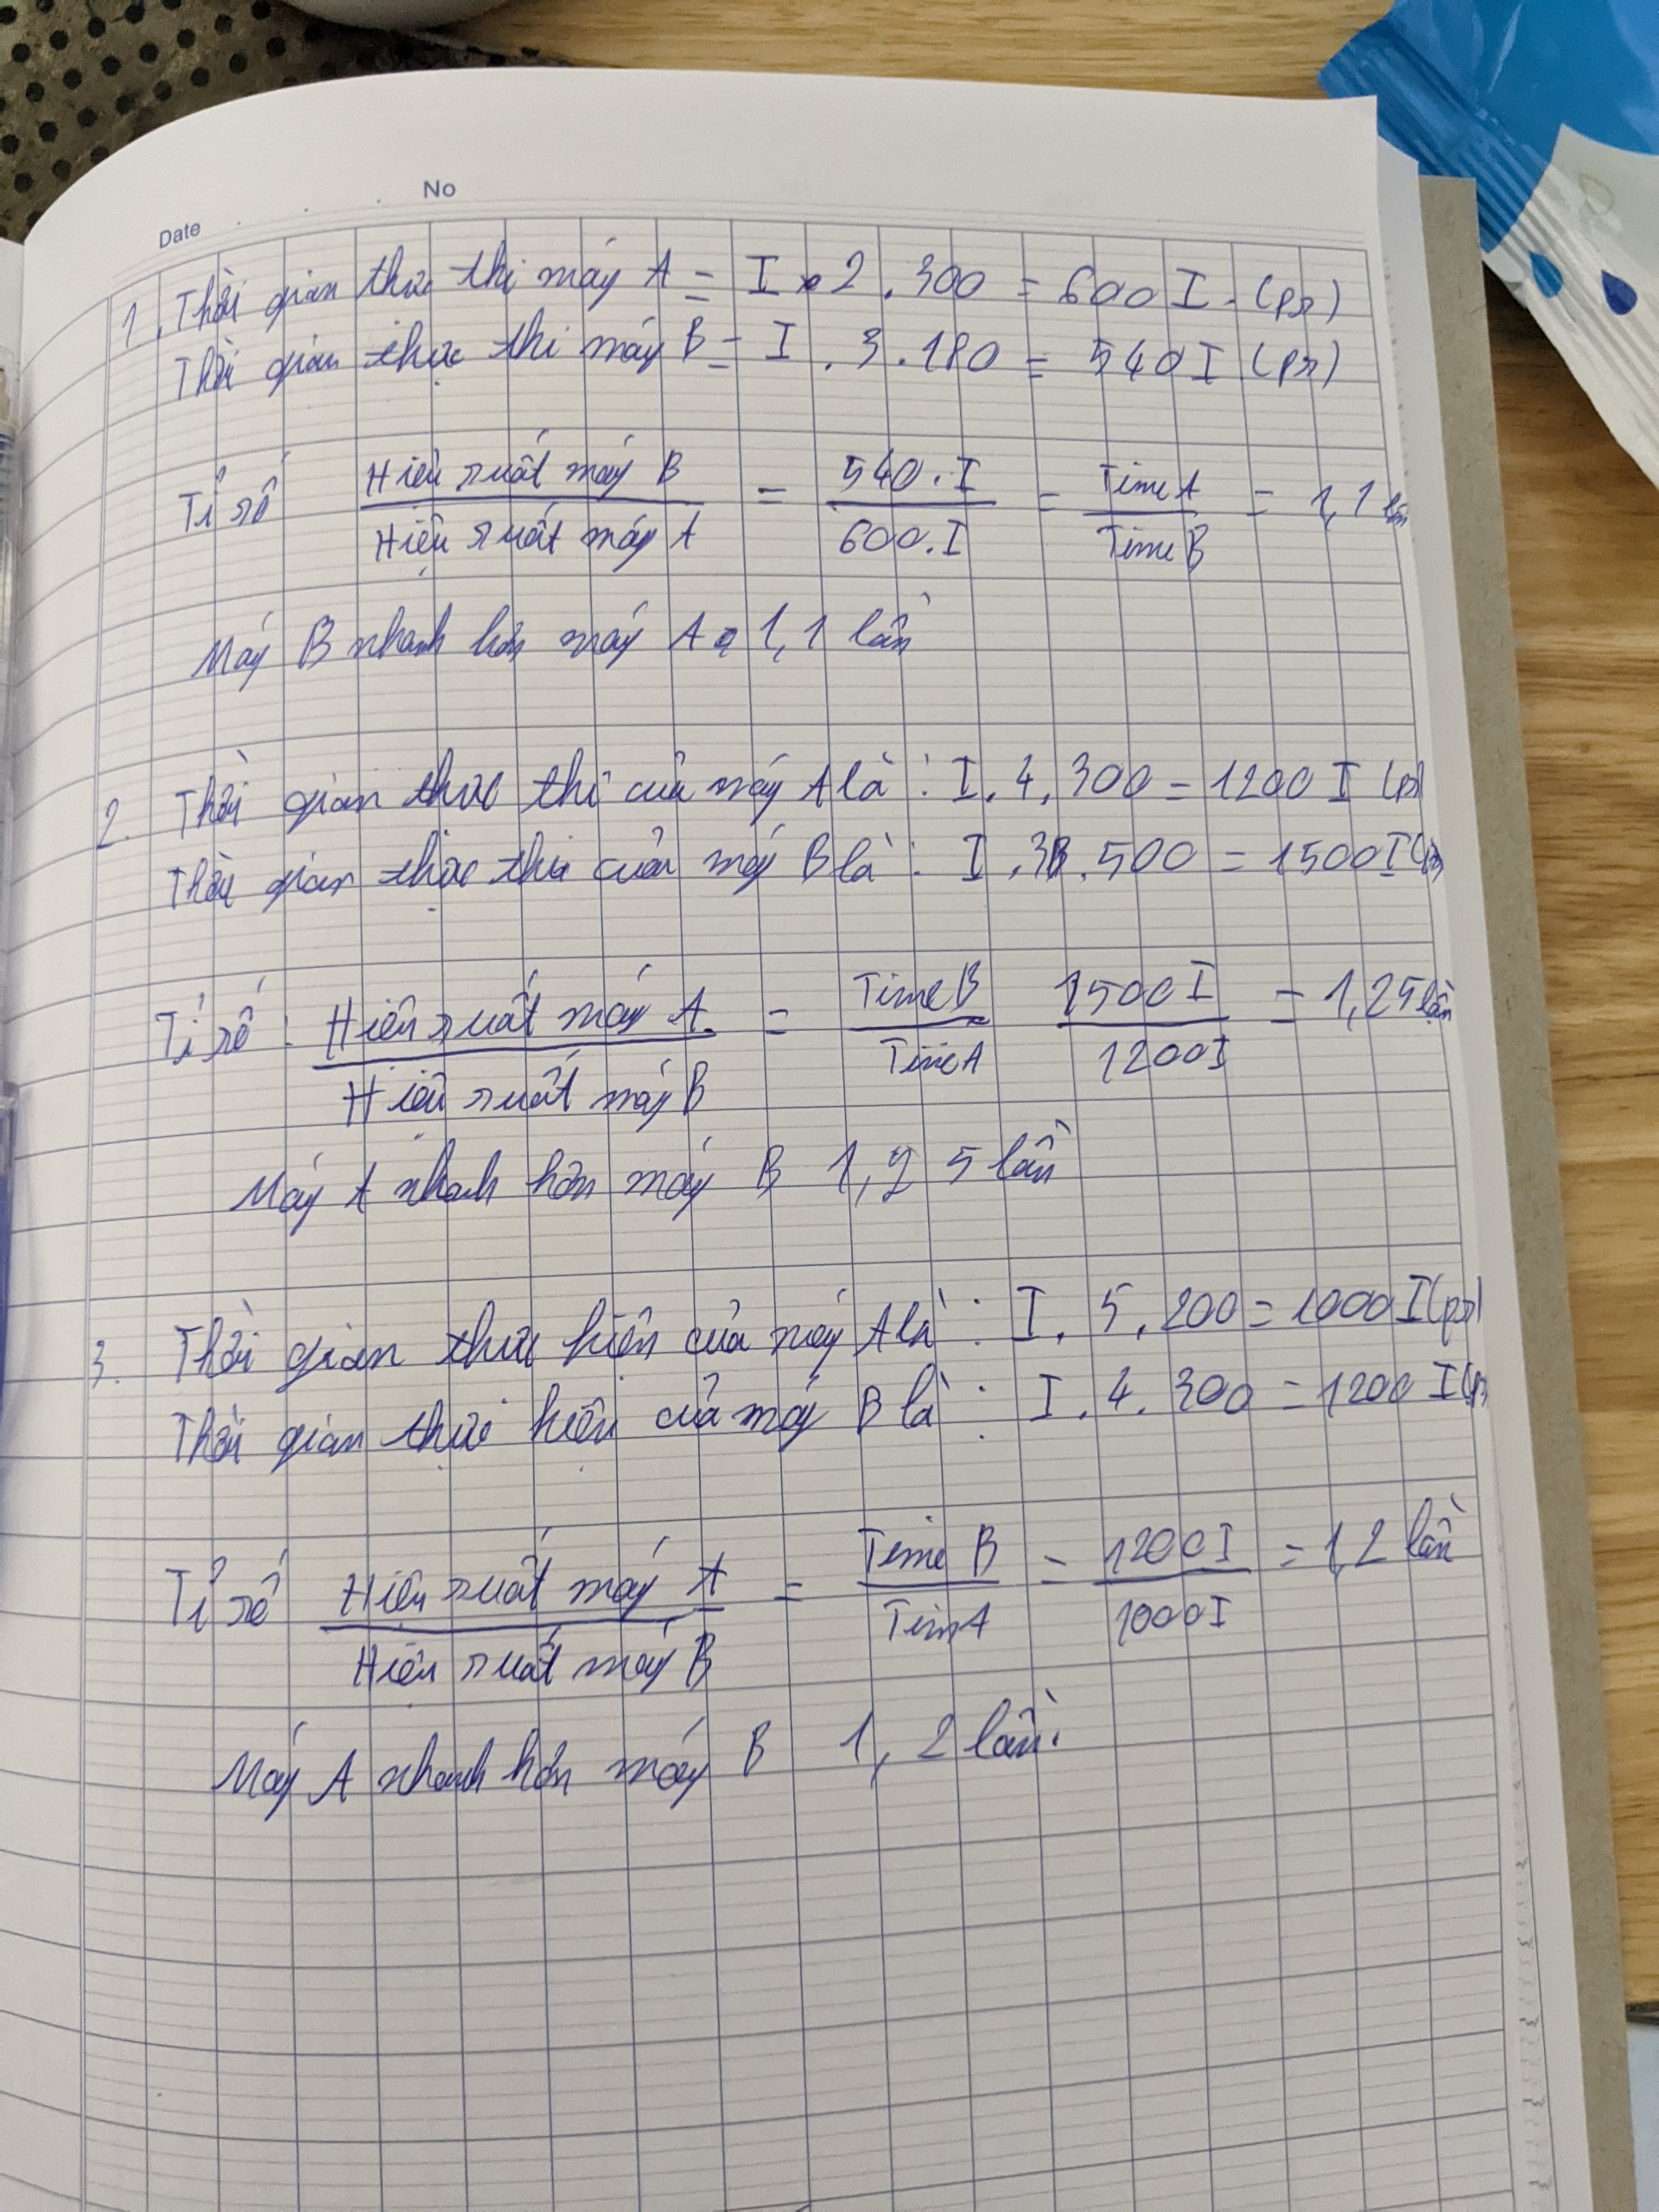 No
Date
1. Thời gian thực thi máy A = I . 2 . 300 = 600 I. (ps)
Thời gian thực thi máy B = I . 3 . 180 = 540 I (ps)
Tỉ số Hiệu suất máy B / Hiệu suất máy A = 540 . I / 600 . I = Time A / Time B = 1,1 lần
Máy B nhanh hơn máy A 1,1 lần
2. Thời gian thực thi của máy A là : I . 4 . 300 = 1200 I (ps)
Thời gian thực thi của máy B là : I . 3 . 500 = 1500 I (ps)
Tỉ số : Hiệu suất máy A / Hiệu suất máy B = Time B / Time A 1500 I / 1200 I = 1,25 lần
Máy A nhanh hơn máy B 1,25 lần
3. Thời gian thực hiện của máy A là : I . 5 . 200 = 1000 I (ps)
Thời gian thực hiện của máy B là : I . 4 . 300 = 1200 I (ps)
Tỉ số Hiệu suất máy A / Hiệu suất máy B = Time B / Tim A = 1200 I / 1000 I = 1,2 lần
Máy A nhanh hơn máy B 1,2 lần.